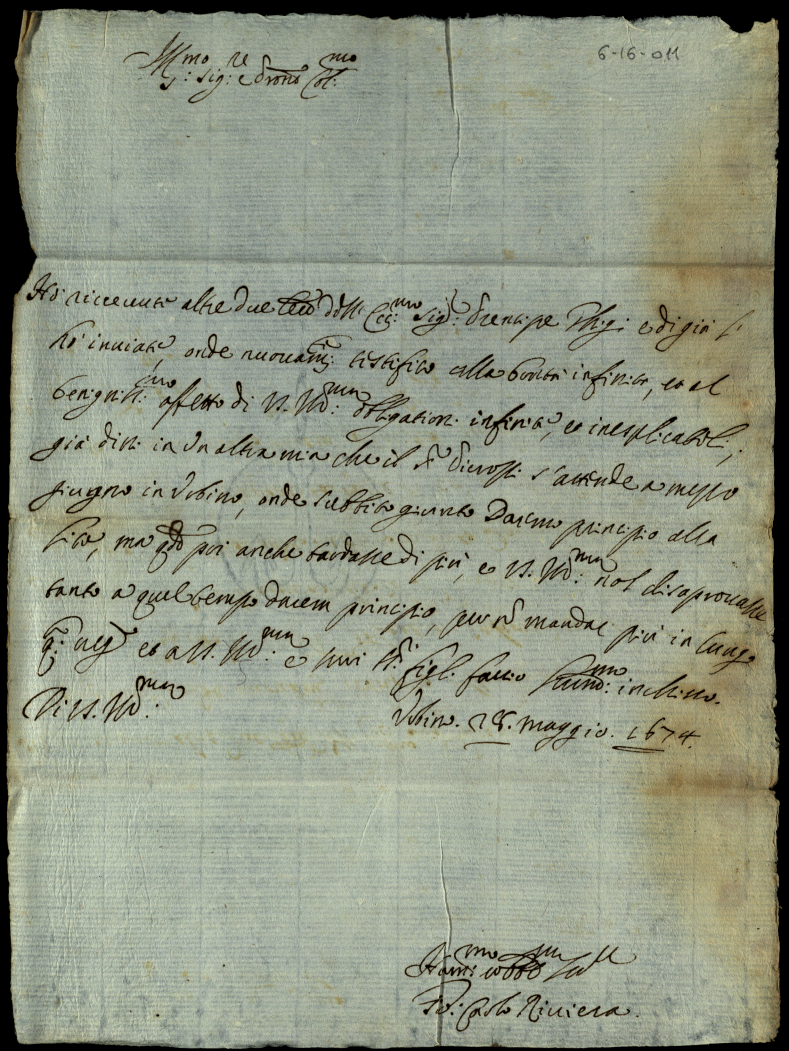 6-16-011
Ill:mo Sig:re e Pron Col:mo
Hò riceuute altre due dell' Ecc:mo Sig: Prencipe Ghigi e di già le
hò inuiate, onde nuouam:te testifico alla bontà infinita, et al
benigniss:mo affetto di V. S. Ill:ma obligationi infinite, et inesplicabili,
già dissi in un altra mia che il s'attende a mezzo
giugno in Urbino, onde subbito giunto daremo principio alla
lite, ma q:do poi anche tardasse di più, e V. S. Ill:ma non disaprouasse
tanto a quel tempo darem principio, per non mandar più in lungo
q:o neg:o et a V. S. Ill:ma e suoi SS:ri figli faccio hum:mo inchino.
Di V. S. Ill:ma
Urbino. 28. maggio. 1674.
Hum:mo et obb:mo Ser:
Gio: Carlo Riuiera.